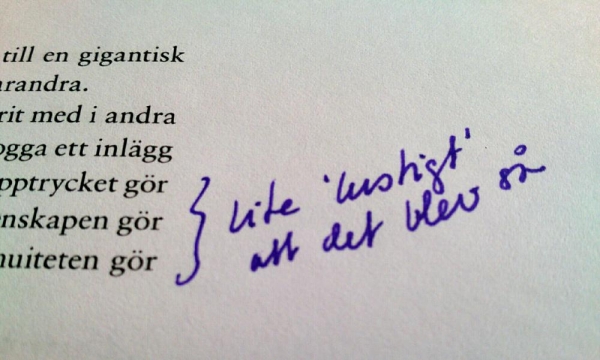 till en gigantisk
arandra.
rit med i andra
ogga ett inlägg
pptrycket gör
enskapen gör
nuiteten gör
lite 'lustigt'
att det blev så